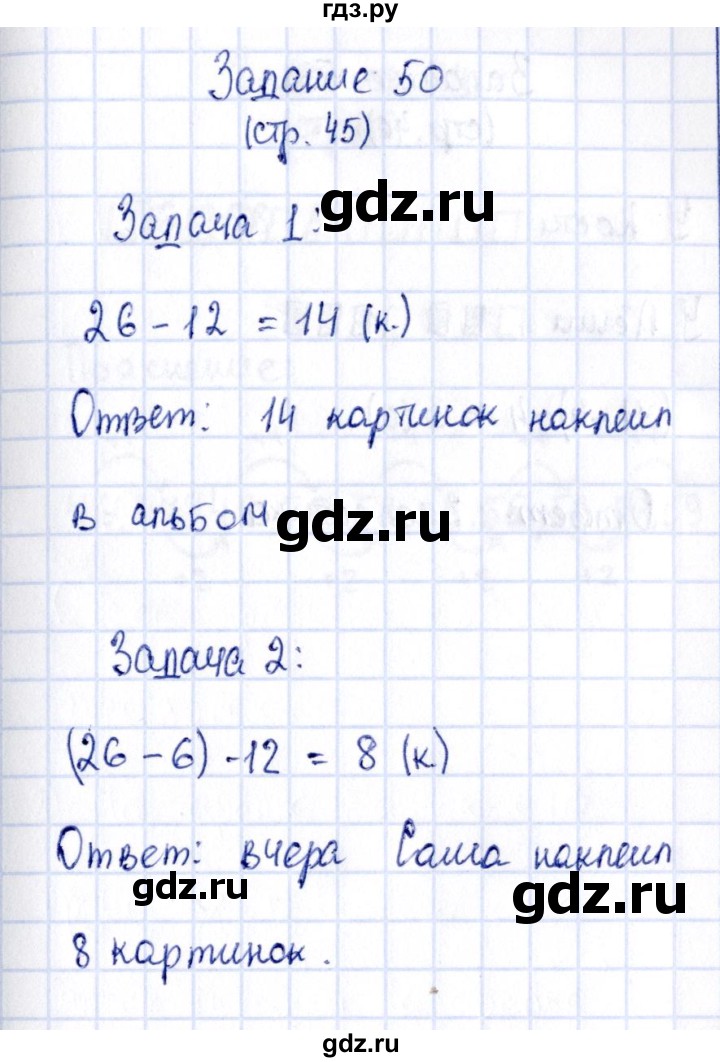 гдз.ру
Задание 50
(стр. 45)
gdz.ru
Задача 1:
26 - 12 = 14 (к.)
Ответ: 14 картинок наклеил
в альбом
gdz.ru
Задача 2:
(26 - 6) - 12 = 8 (к.)
Ответ: вчера Саша наклеил
gdz.ru
gdz.ru
8 картинок.
gdz.ru